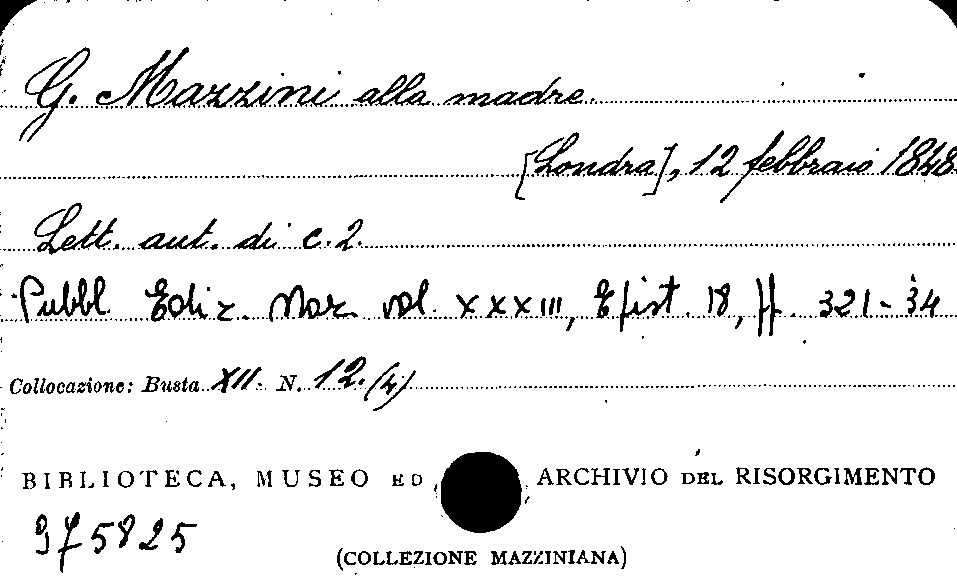 G. Mazzini alla madre.
[Londra], 12 febbraio 1848
Lett. aut. di c. 2.
Pubbl. Ediz. Naz. vol. XXXIII, Epist. 18, pp. 321-34
Collocazione: Busta XII. N. 12. (4)
BIBLIOTECA, MUSEO ED ARCHIVIO DEL RISORGIMENTO
975825
(COLLEZIONE MAZZINIANA)